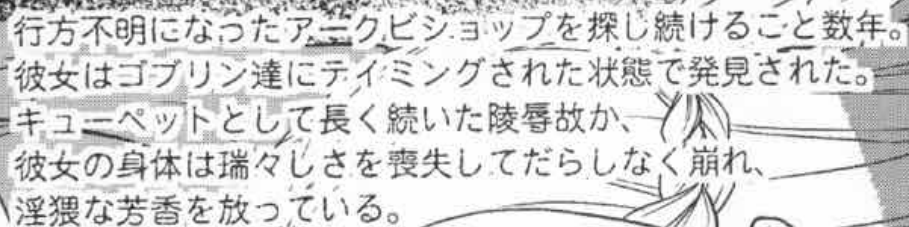 行方不明になったアークビショップを探し続けること数年。
彼女はゴブリン達にテイミングされた状態で発見された。
キューペットとして長く続いた陵辱故か、
彼女の身体は瑞々しさを喪失してだらしなく崩れ、
淫猥な芳香を放っている。